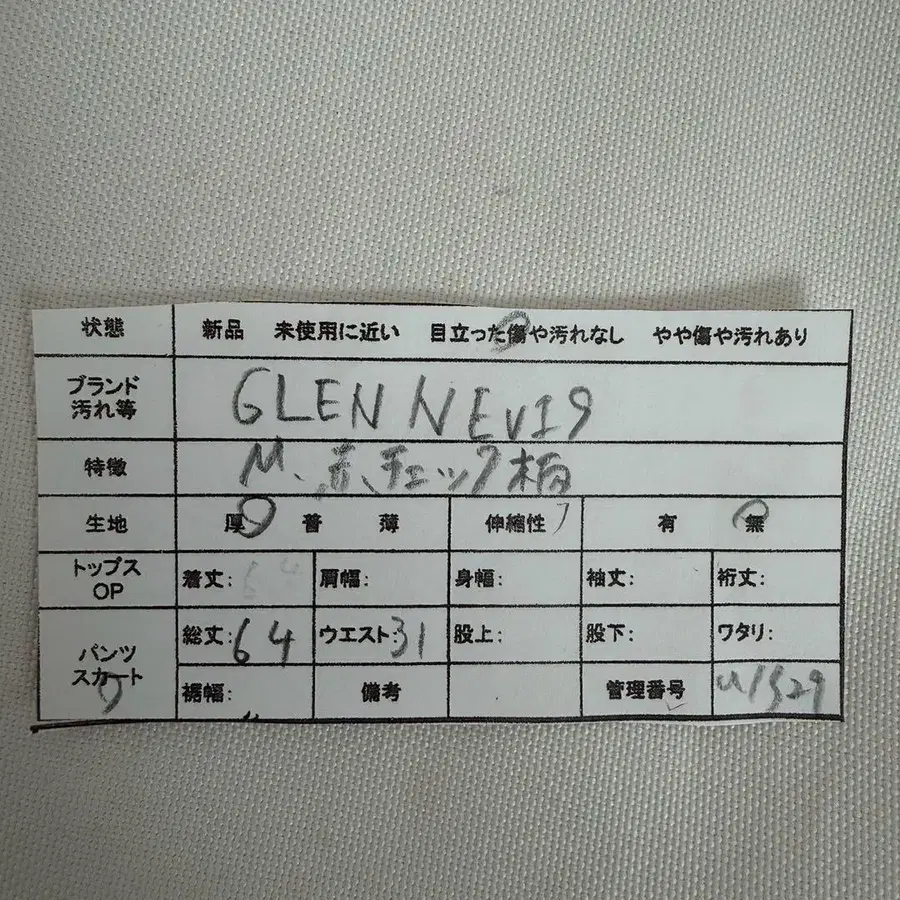 状態 新品 未使用に近い 目立った傷や汚れなし やや傷や汚れあり
ブランド
汚れ等 GLEN NEVI9
特徴 M、赤、チェック柄
生地 厚 普 薄 伸縮性 有 無
トップス
OP 着丈: 64 肩幅: 身幅: 袖丈: 裄丈:
パンツ
スカート 総丈: 64 ウエスト: 31 股上: 股下: ワタリ:
裾幅: 備考 管理番号 u1529